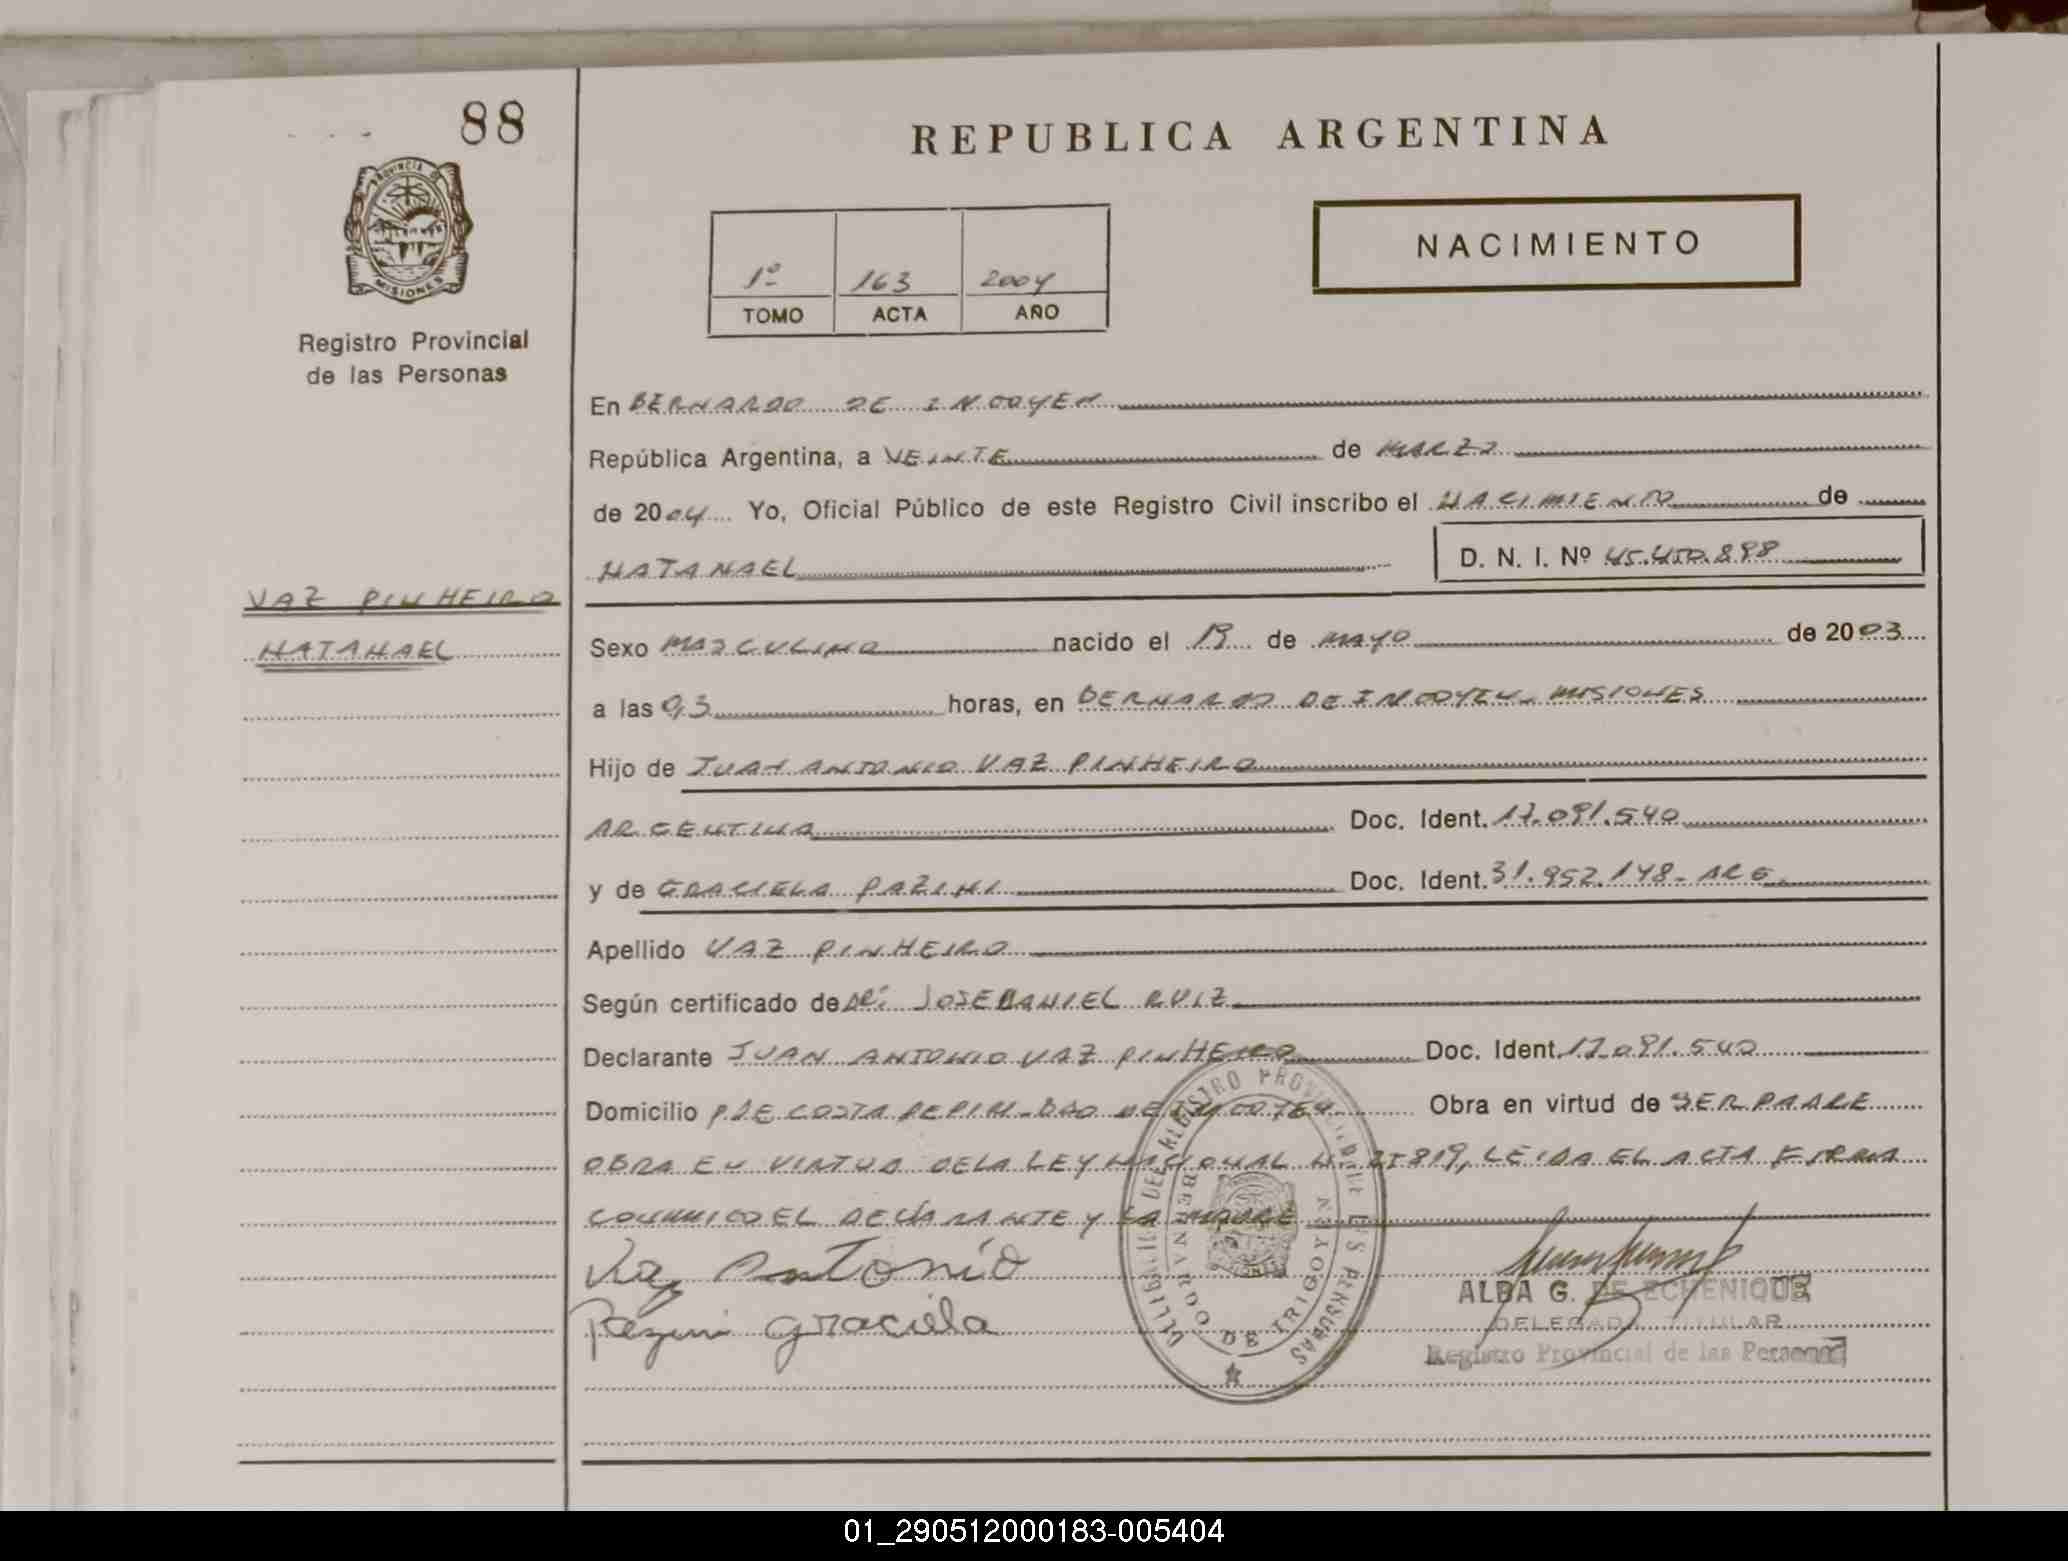 88
REPUBLICA ARGENTINA
PROVINCIA DE
MISIONES
NACIMIENTO
1º 163 2004
TOMO ACTA AÑO
Registro Provincial
de las Personas
En BERNARDO DE IRIGOYEN
República Argentina, a VEINTE de MARZO
de 2004 Yo, Oficial Público de este Registro Civil inscribo el NACIMIENTO de
NATANAEL D. N. I. Nº 45.450.898
VAZ PINHEIRO
NATANAEL
Sexo MASCULINO nacido el de MAYO de 2003
a las 03 horas, en BERNARDO DE IRIGOYEN - MISIONES
Hijo de JUAN ANTONIO VAZ PINHEIRO
ARGENTINA Doc. Ident. 17.091.540
y de GRACIELA PAZINI Doc. Ident. 31.952.148- ARG.
Apellido VAZ PINHEIRO
Según certificado de DR: JOSE DANIEL RUIZ
Declarante JUAN ANTONIO VAZ PINHEIRO Doc. Ident. 17.091.540
Domicilio PJE COSTA PEPIRI - BDO DE IRIGOYEN Obra en virtud de SER PADRE
OBRA EN VIRTUD DE LA LEY NACIONAL N° 25819, LEIDA EL ACTA FIRMA
CONMIGO EL DECLARANTE Y LA MADRE
Vaz Antonio
Pazini Graciela
DELEGACION DEL REGISTRO PROVINCIAL DE LAS PERSONAS
BERNARDO DE IRIGOYEN
ALBA G. DE ECHENIQUE
DELEGADA TITULAR
Registro Provincial de las Personas
01_290512000183-005404